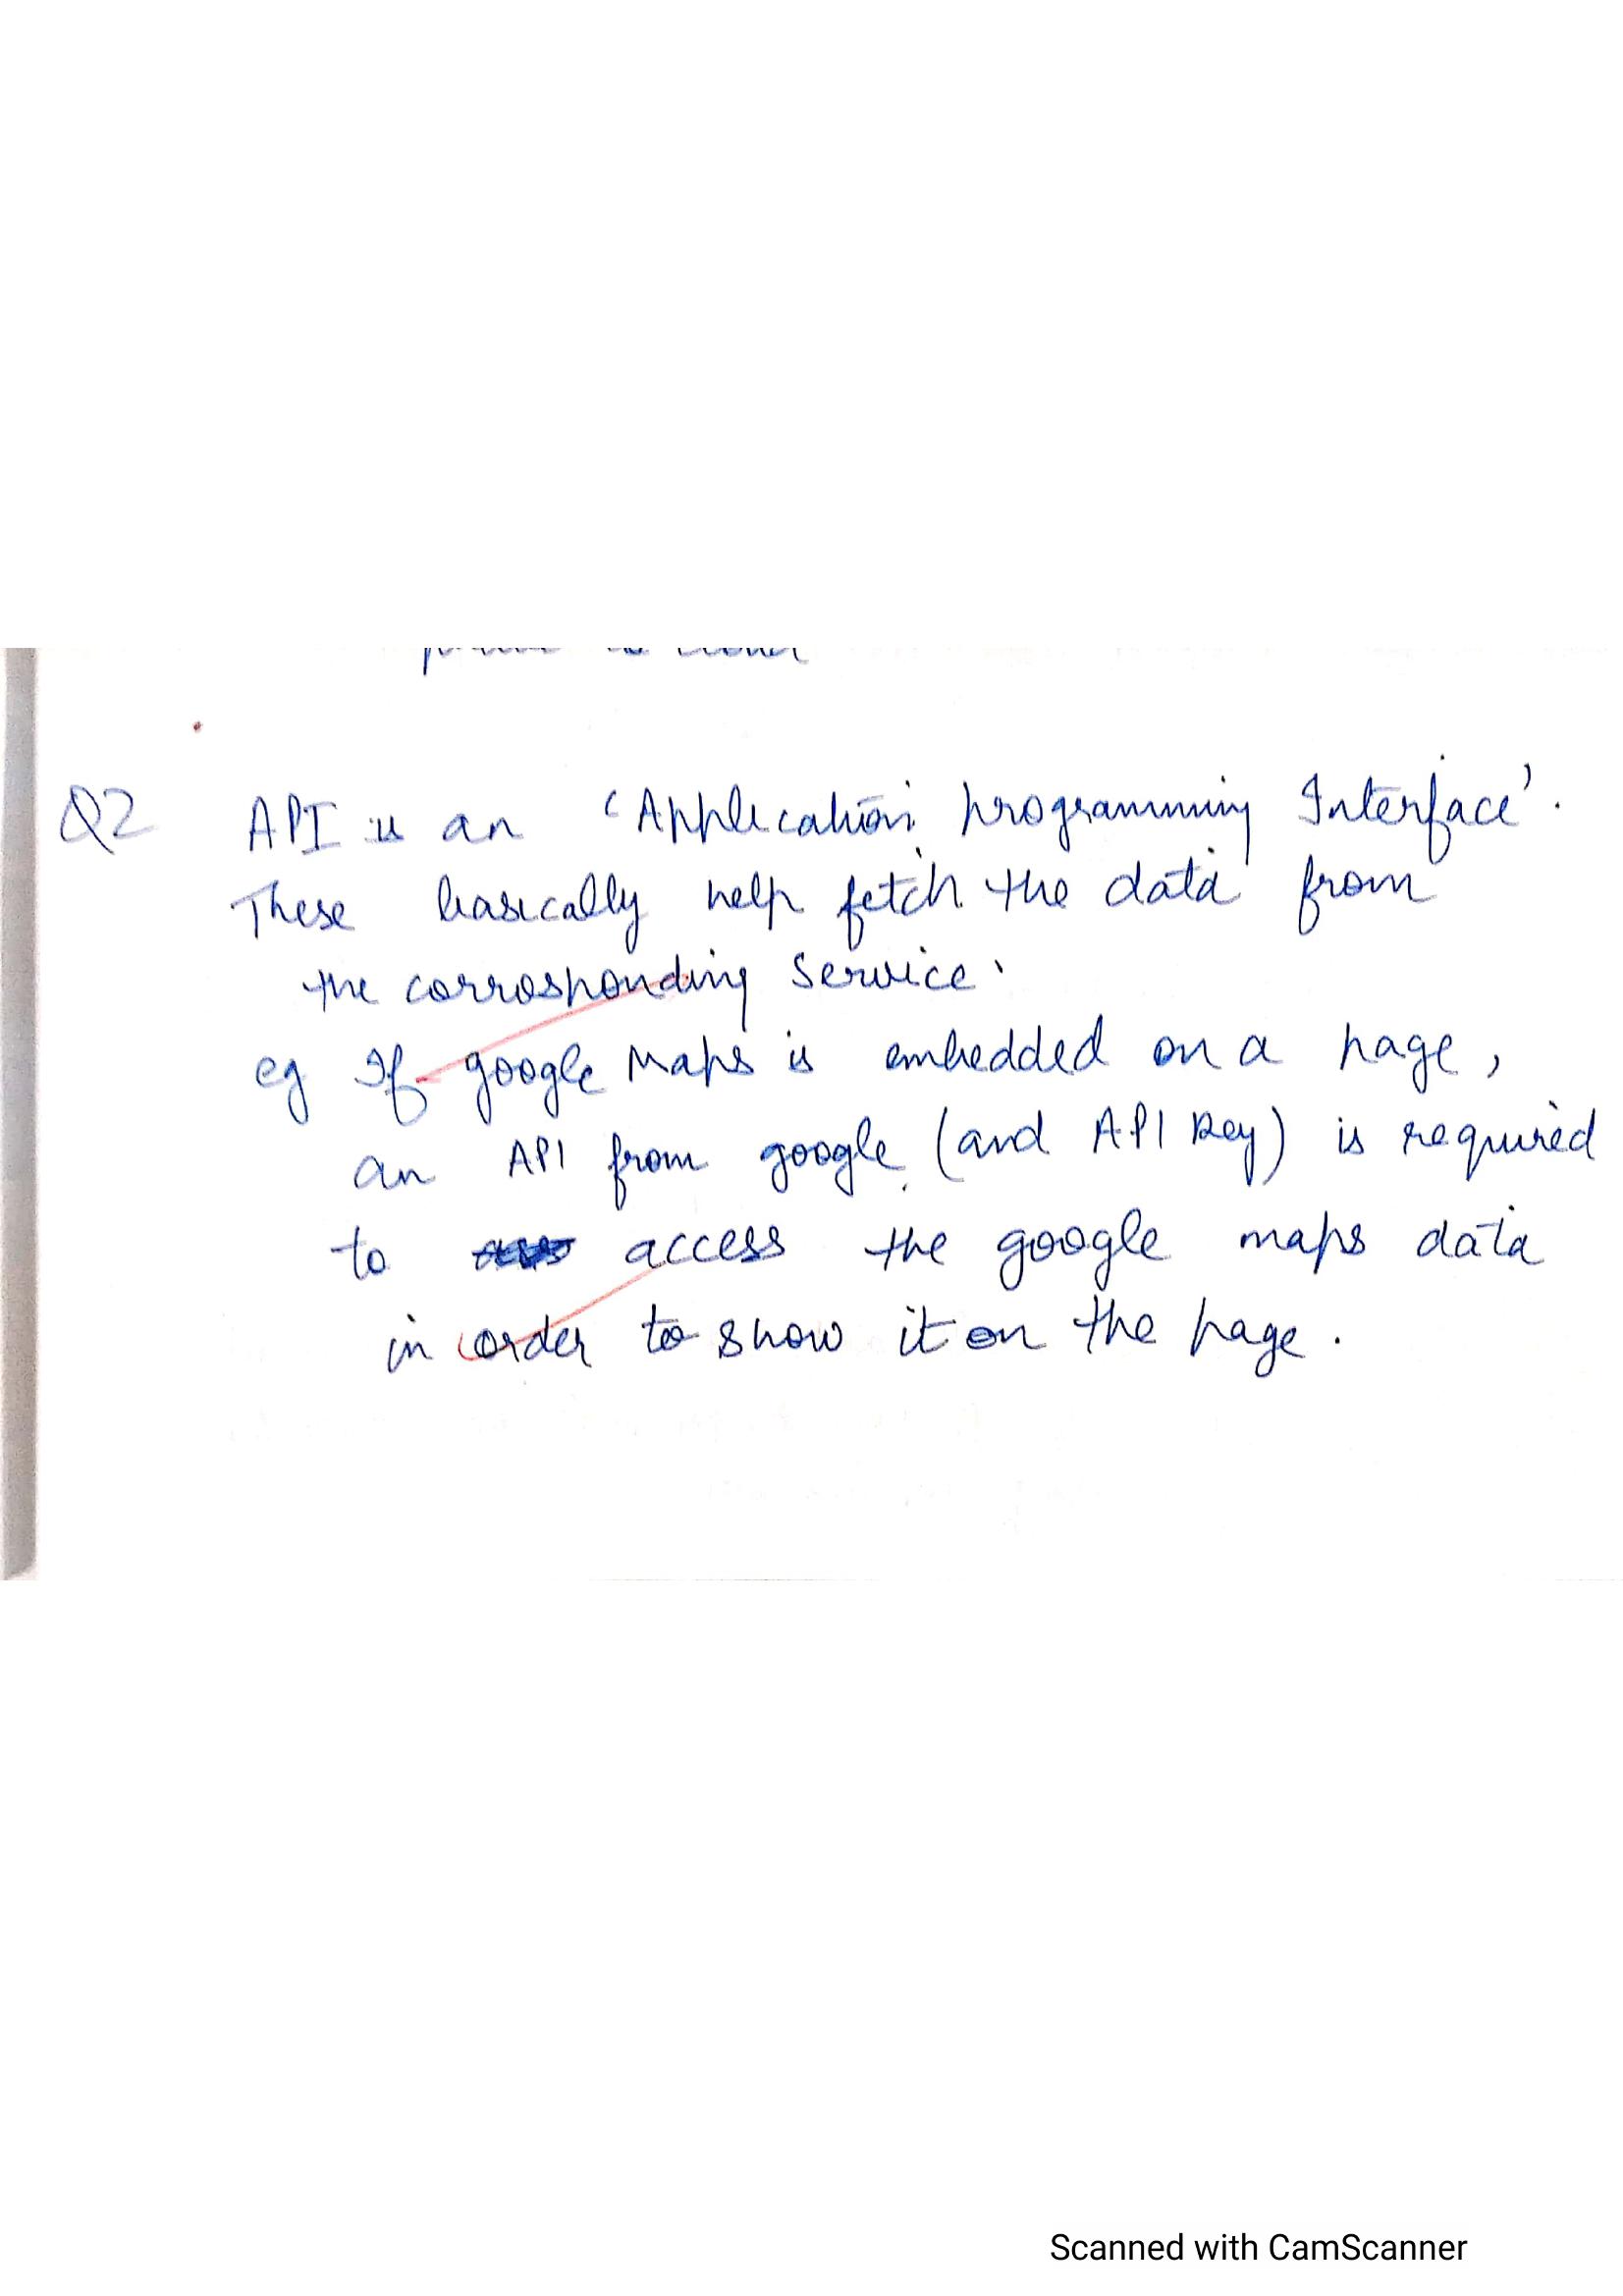 Q2 API is an 'Application programming Interface'.
These basically help fetch the data from
the corrosponding service.
eg If google Maps is embedded on a page,
an API from google (and API key) is required
to access the google maps data
in order to show it on the page.
Scanned with CamScanner